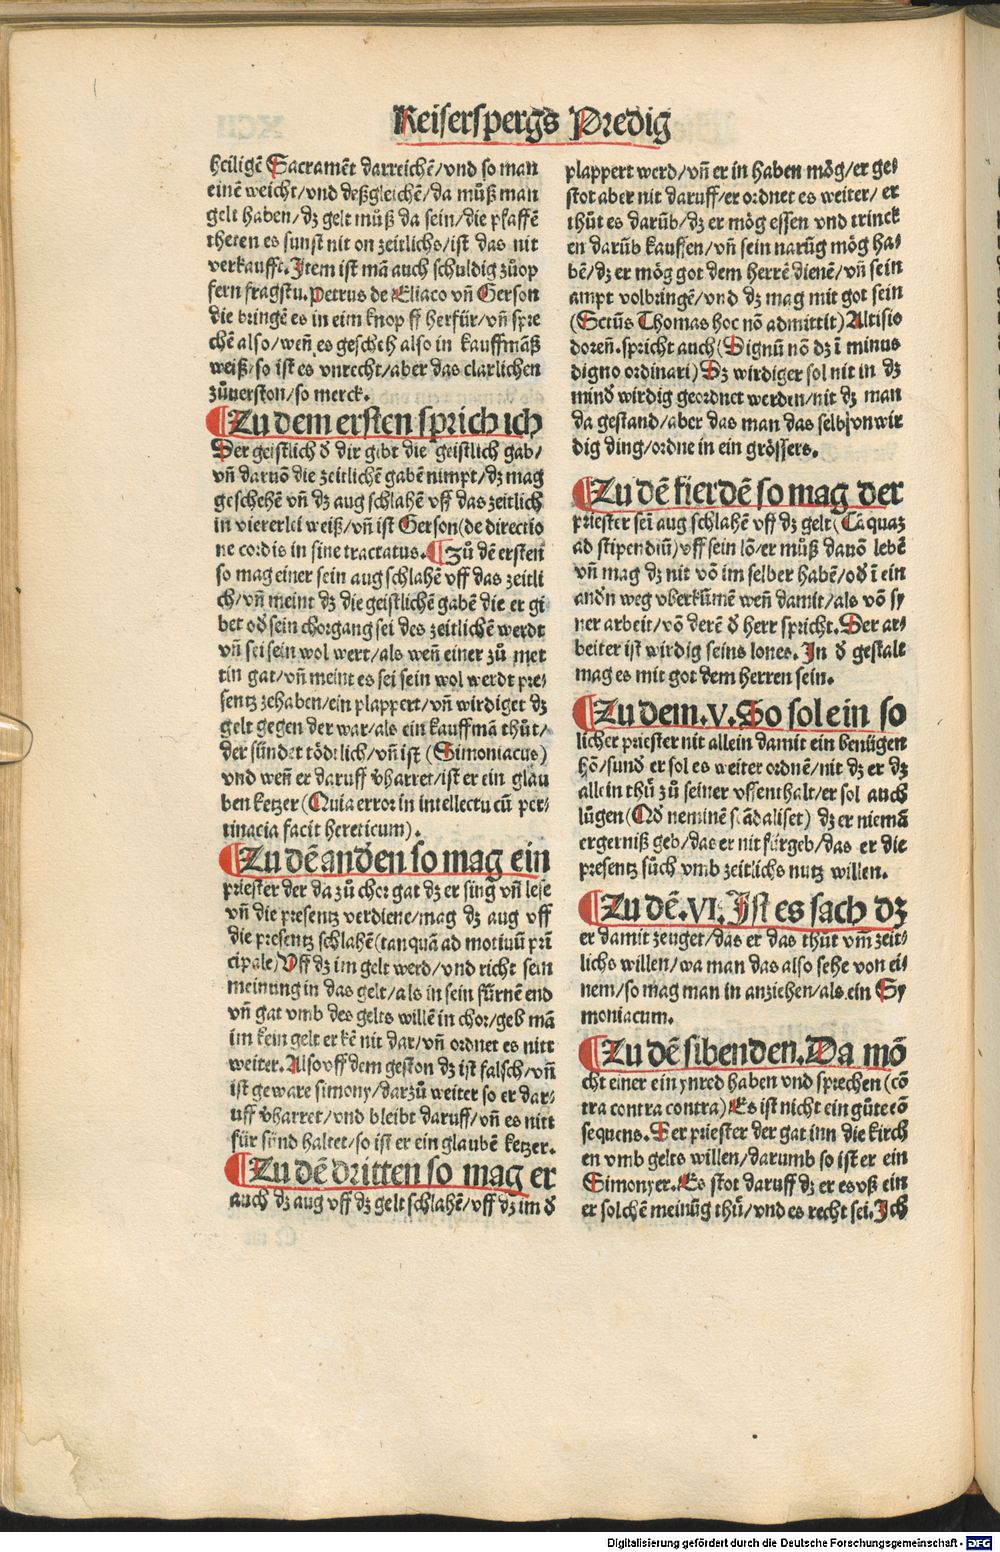 Keiserspergs Predig
heiligē Sacramēt darreichē/vnd so man
einē weicht/vnd deßgleichē/da můß man
gelt haben/dz gelt můß da sein/die pfaffē
theten es sunst nit on zeitlichs/ist das nit
verkaufft. Item ist mā auch schuldig zůop
fern fragstu. Petrus de Eliaco vñ Gerson
die bringē es in eim knopff herfür/vñ spre
chē also/weñ es geschch also in kauffmāß
weiß/so ist es vnrecht/aber das clarlichen
zůuerston/so merck.
¶Zu dem ersten sprich ich
Der geistlich d̄ dir gibt die geistlich gab/
vñ daruō die zeitlichē gabē nimpt/dz mag
geschehē vñ dz aug schlahē vff das zeitlich
in viererlei weiß/vñ ist Gerson (de directio
ne cordis in fine tractatus. ¶Zů dē ersten
so mag einer sein aug schlahē vff das zeitli
ch/vñ meint dz die geistlichē gabē die er gi
bet od̄ sein chorgang sei des zeitlichē werdt
vñ sei sein wol wert/als weñ einer zů met
tin gat/vñ meint es sei sein wol werdt pre⸗
sentz zehaben/ein plappert/vñ wirdiget dz
gelt gegen der war/als ein kauffmā thůt/
der sündet tödtlich/vñ ist (Simoniacus)
vnd weñ er daruff v̄harret/ist er ein glau
ben ketzer (Quia error in intellectu cū per⸗
tinacia facit hereticum).
¶Zu dē and̄en so mag ein
priester der da zů chor gat dz er sing vñ lese
vñ die presentz verdiene/mag dz aug vff
die presentz schlahē (tanquā ad motiuū prī
cipale) Vff dz im gelt werd/vnd richt sein
meinung in das gelt/als in sein fürnē end
vñ gat vmb des gelts willē in chor/geb mā
im kein gelt er kē nit dar/vñ ordnet es nitt
weiter. Also vff dem geston dz ist falsch/vñ
ist geware simony/darzů weiter so er dar⸗
uff v̄harret/vnd bleibt daruff/vñ es nitt
für sünd haltet/so ist er ein glaubē ketzer.
¶Zu dē dritten so mag er
auch dz aug vff dz gelt schlahē/vff dz im d̄
plappert werd/vñ er in haben mög/er ge⸗
stot aber nit daruff/er ordnet es weiter/er
thůt es darūb/dz er mög essen vnd trinck
en darūb kauffen/vñ sein narūg mög ha⸗
bē/dz er mög got dem herrē dienē/vñ sein
ampt volbringē/vnd dz mag mit got sein
(Sctūs Thomas hoc nō admittit) Altisio
doreñ. spricht auch (Dignū nō dz ī minus
digno ordinari) Dz wirdiger sol nit in dz
mind̄ wirdig geordnet werden/nit dz man
da gestand/aber das man das selb vnwir
dig ding/ordne in ein grössers.
¶Zu dē fierdē so mag der
priester sein aug schlahē vff dz gelt (Tāquaz
ad stipendiū) vff sein lō/er můß dauō lebē
vñ mag dz nit vō im selber habē/od̄ ī ein
and̄n weg vberkūmē weñ damit/als vō sy
ner arbeit/vō derē d̄ herr spricht. Der ar⸗
beiter ist wirdig seins lones. In d̄ gestalt
mag es mit got dem herren sein.
¶Zu dem.V. So sol ein so
licher priester nit allein damit ein benügen
hō/sund̄ er sol es weiter ordnē/nit dz er dz
allein thů zů seiner vffenthalt/er sol auch
lügen (Qd̄ neminē scādaliset) dz er niemā
ergerniß geb/das er nit fürgeb/das er die
presentz sůch vmb zeitlichs nutz willen.
¶Zu dē.VI. Ist es sach dz
er damit zeuget/das er das thůt vm̄ zeit⸗
lichs willen/wa man das also sehe von ei⸗
nem/so mag man in anziehen/als ein Sy
moniacum.
¶Zu dē sibenden. Da mō
cht einer ein ynred haben vnd sprechen (cō
tra contra contra) Es ist nicht ein gůte cō
sequens. Der priester der gat inn die kirch
en vmb gelts willen/darumb so ist er ein
Simonyer. Es stot daruff dz er es vß ein
er solchē meinūg thů/vnd es recht sei. Ich
Digitalisierung gefördert durch die Deutsche Forschungsgemeinschaft - DFG